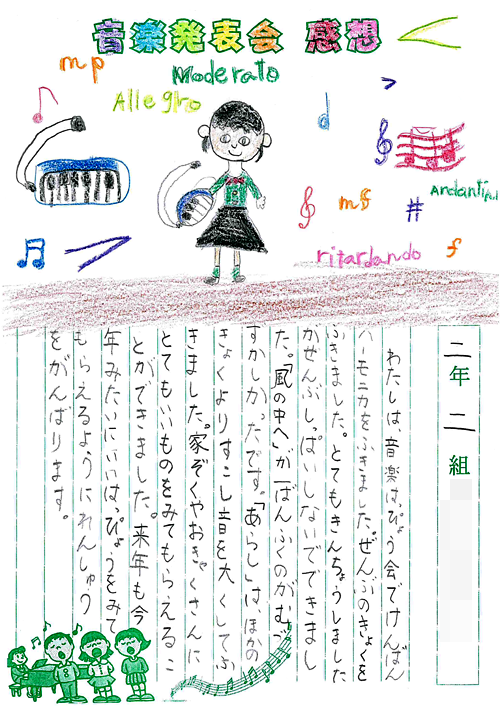 音楽発表会 感想
mp
Moderato
Allegro
mf
ritardando
f
二年 二 組
わたしは、音楽はっぴょう会でけんばん
ハーモニカをふきました。ぜんぶのきょくを
ふきました。とてもきんちょうしました
がぜんぶしっぱいしないでできまし
た。「風の中へ」が一ばんふくのがむず
すかしかったです。「あらし」は、ほかの
きょくよりすこし音を大きくしてふ
きました。家ぞくやおきゃくさんに
とてもいいものをみてもらえるこ
とができました。来年も今
年みたいにいいはっぴょうをみて
もらえるようにれんしゅう
をがんばります。